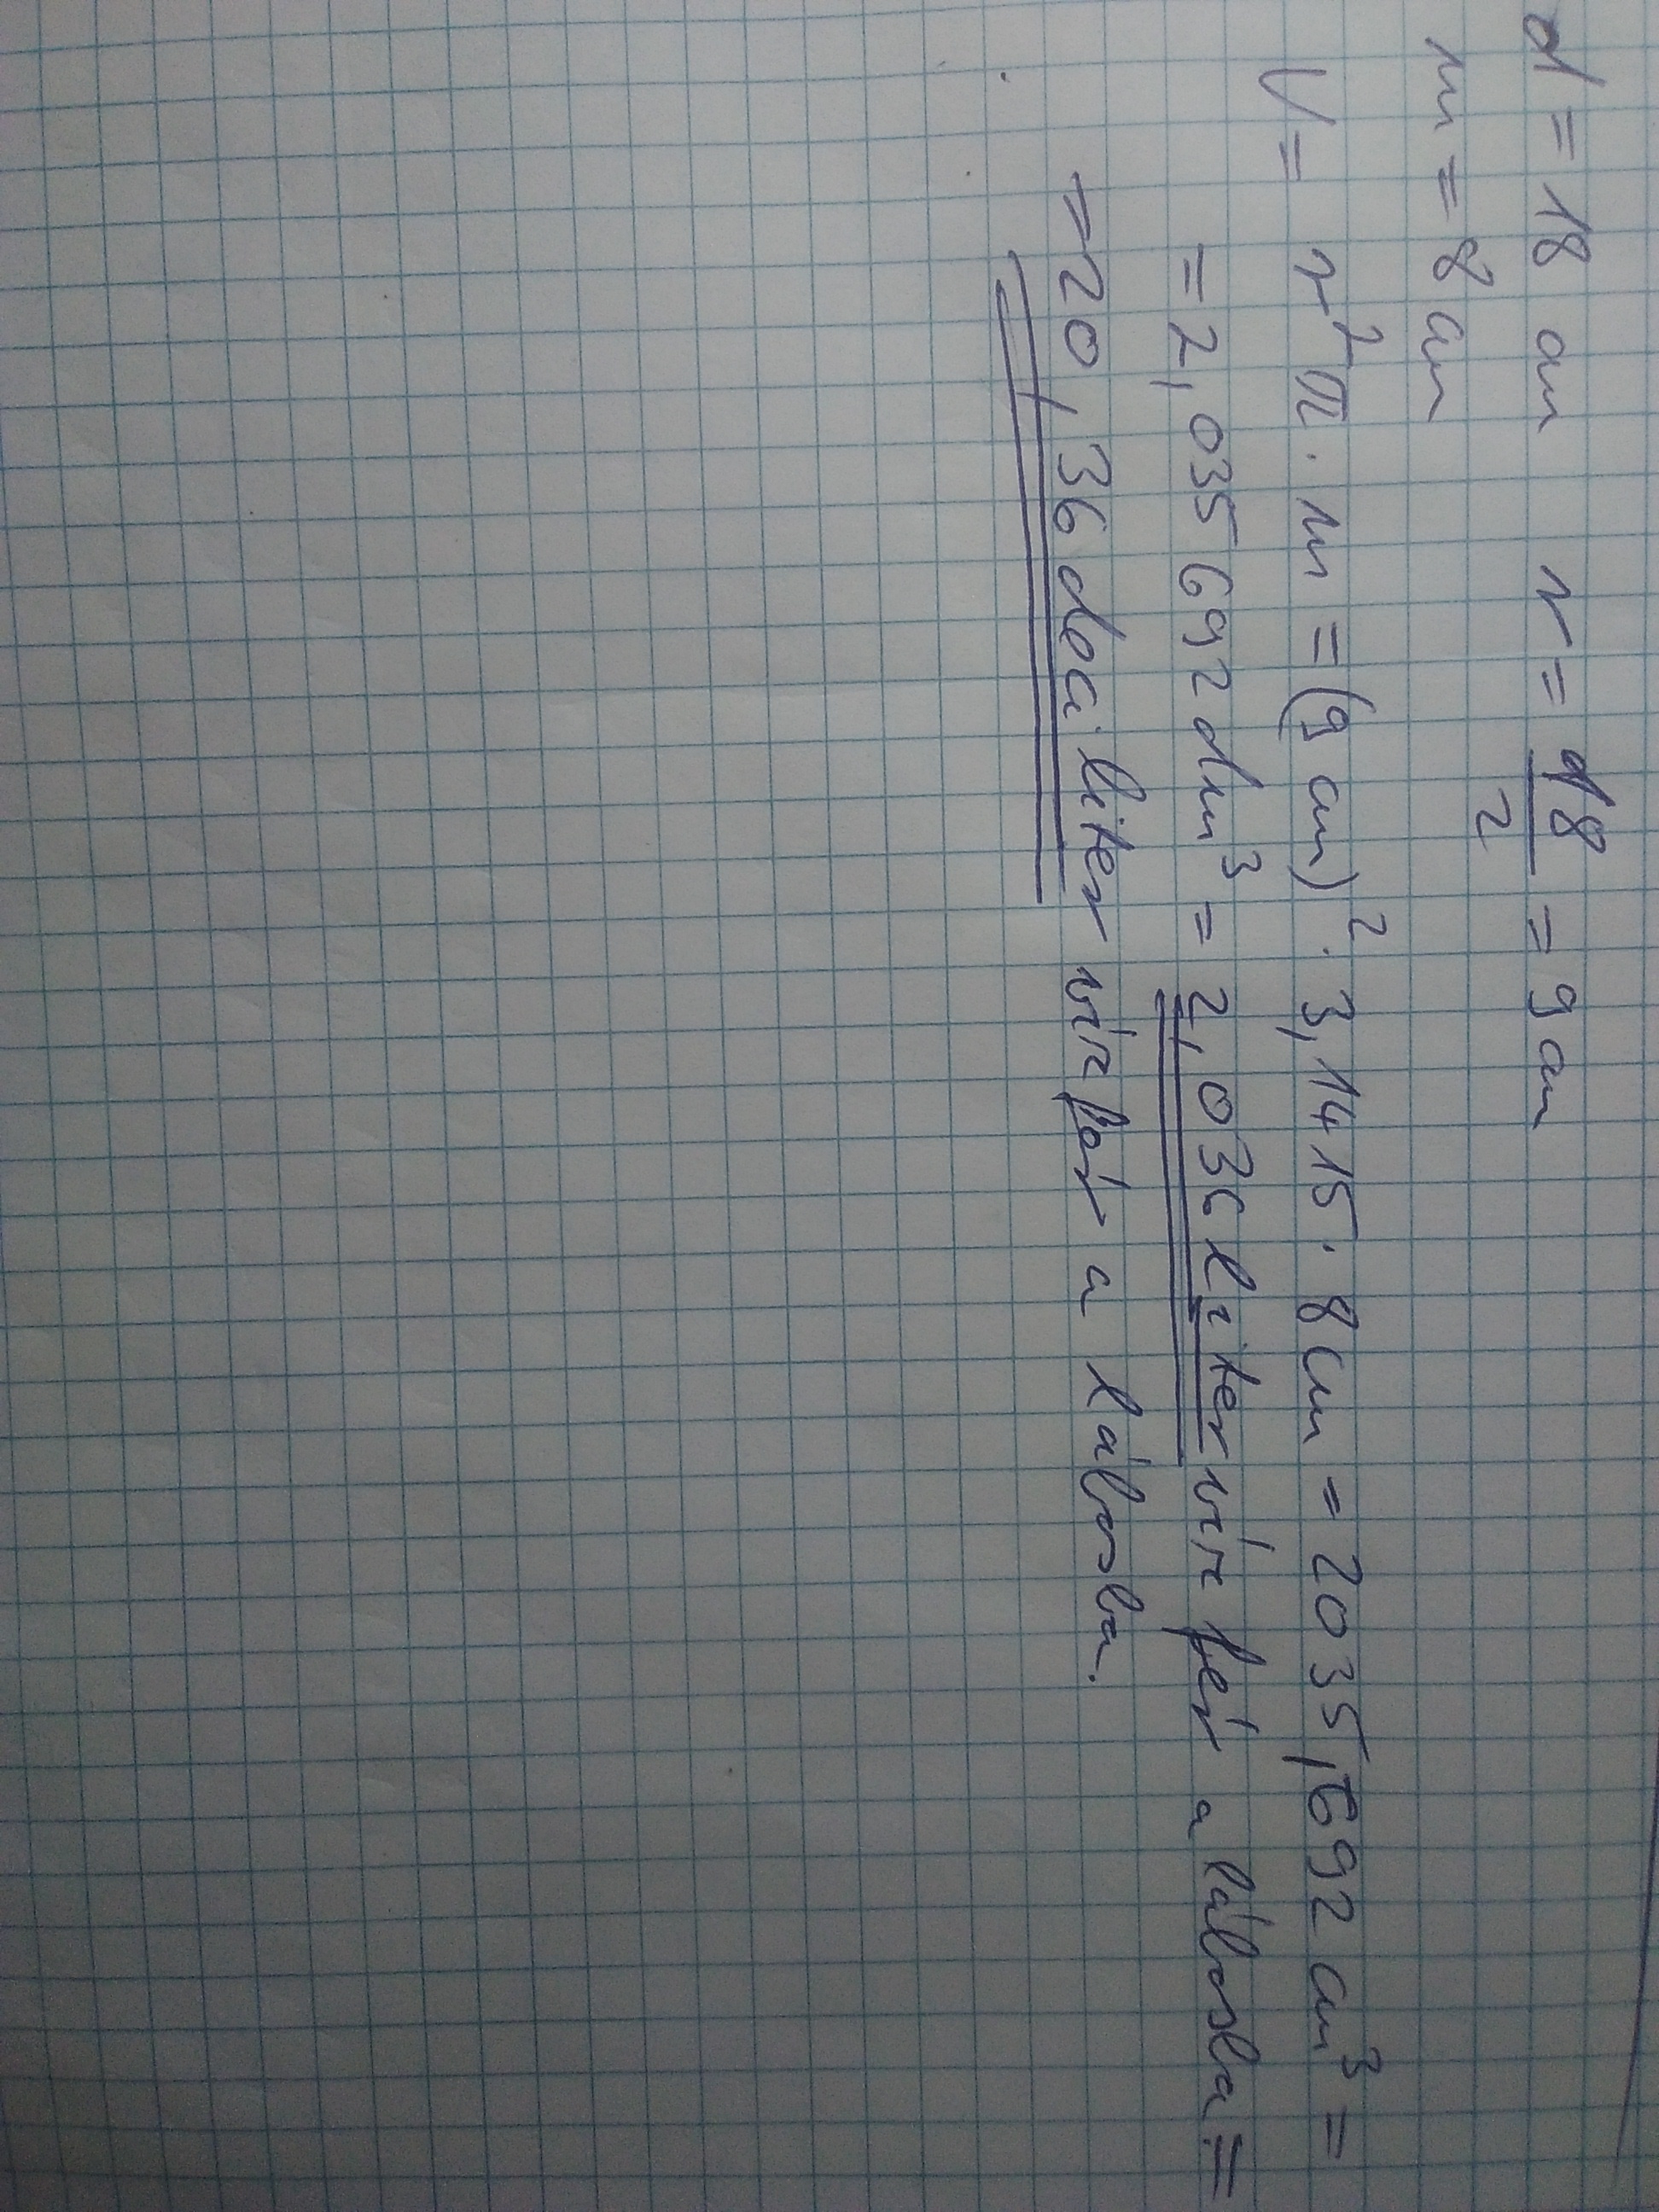 d = 18 cm r = d8/2 = 9 cm
m = 8 cm
V = r²π · m = (9 cm)² · 3,1415 · 8 cm = 2035,692 cm³ =
= 2,035692 dm³ = 2,036 liter víz fér a lábosba =
= 20,36 deciliter víz fér a lábosba.